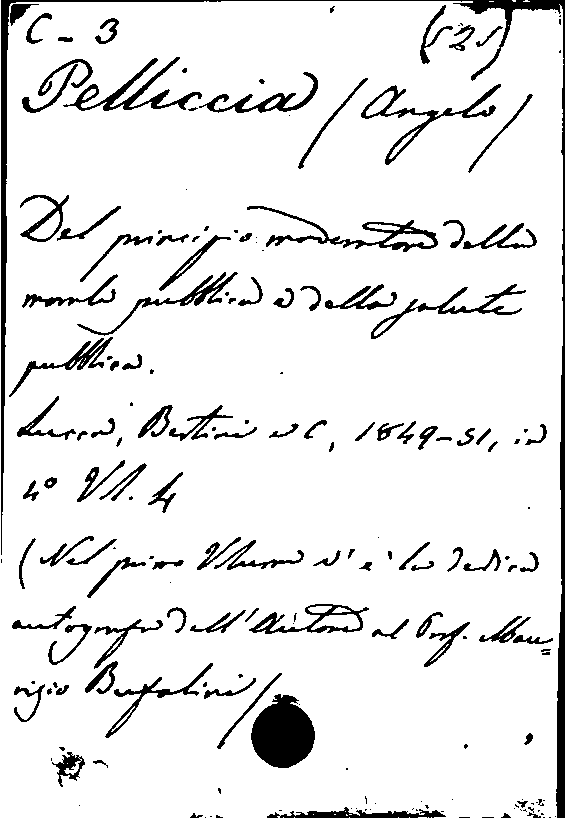 C - 3 (525)
Pelliccia / Angelo /
Del principio moderatore della
morale pubblica e della salute
pubblica.
Lucca, Bertini e C, 1849-51, in
4° Vl. 4
(Nel primo Volume v' e' la dedica
autografa dell'Autore al Prof. Mau=
rizio Bufalini /